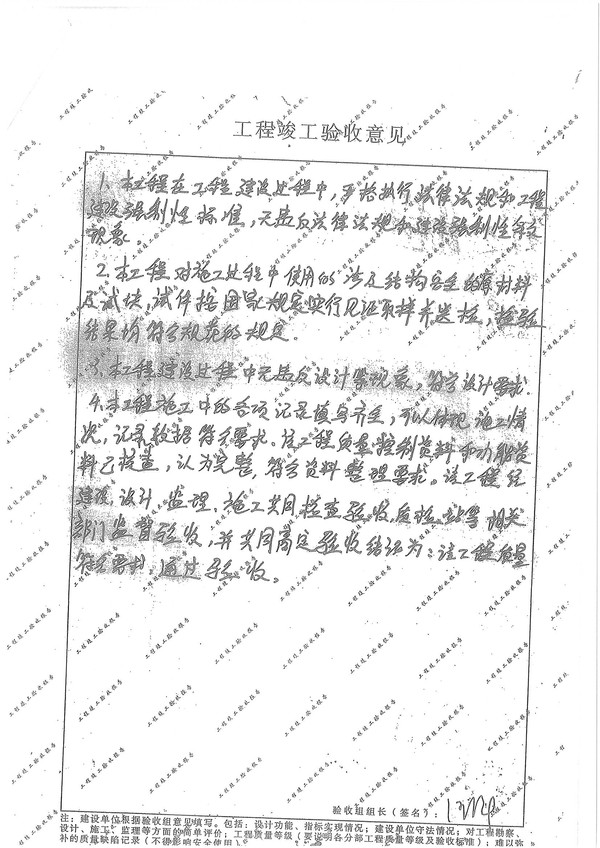 工程竣工验收意见
1. 本工程在工程建设过程中,严格执行法律法规和工程
建设强制性标准,无违反法律法规和建设强制性条文
现象。
2. 本工程对施工过程中使用的涉及结构安全的原材料
及试块,试件按国家规定实行见证取样并送检,检验
结果均符合规范的规定。
3. 本工程建设过程中无违反设计等现象,符合设计要求.
4. 本工程施工中的各项记录填写齐全,可以体现施工情
况,记录数据符合要求。该工程质量控制资料和功能资
料已核查,认为完整,符合资料整理要求。该工程经
建设、设计、监理、施工共同检查验收质检站等相关
部门监督验收,并共同商定验收结论为:该工程质量
符合要求,通过验收。
验收组组长(签名):
注:建设单位根据验收组意见填写。包括:设计功能、指标实现情况;建设单位守法情况;对工程勘察、
设计、施工、监理等方面的简单评价;工程质量等级(要说明各分部工程质量等级及验收标准);难以弥
补的质量缺陷记录(不得影响安全使用)
工程竣工验收报告